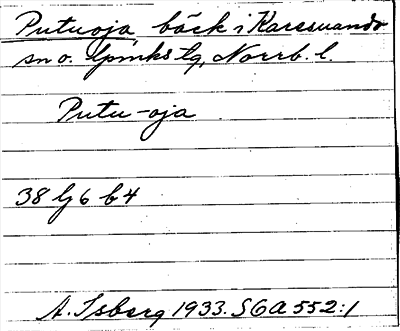 Putuoja, bäck i Karesuando
sn o. lpmks lg, Norrb. l.
Putu-oja
38 lj 6 b 4
A. Isberg 1933. SOA 552:1